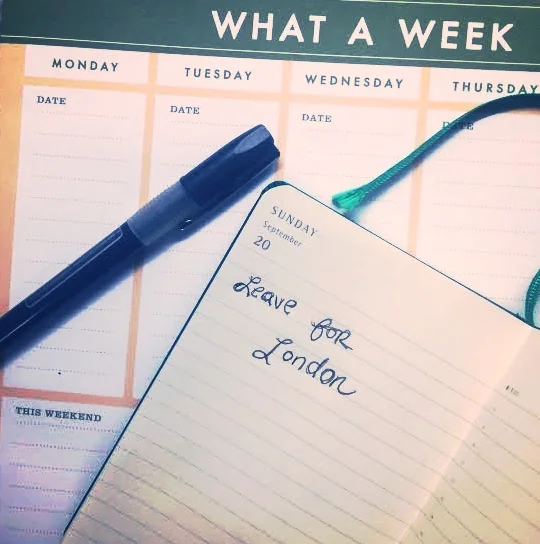 WHAT A WEEK
MONDAY TUESDAY WEDNESDAY THURSDAY
DATE DATE DATE DATE
THIS WEEKEND
SUNDAY
September
20
Leave for
London